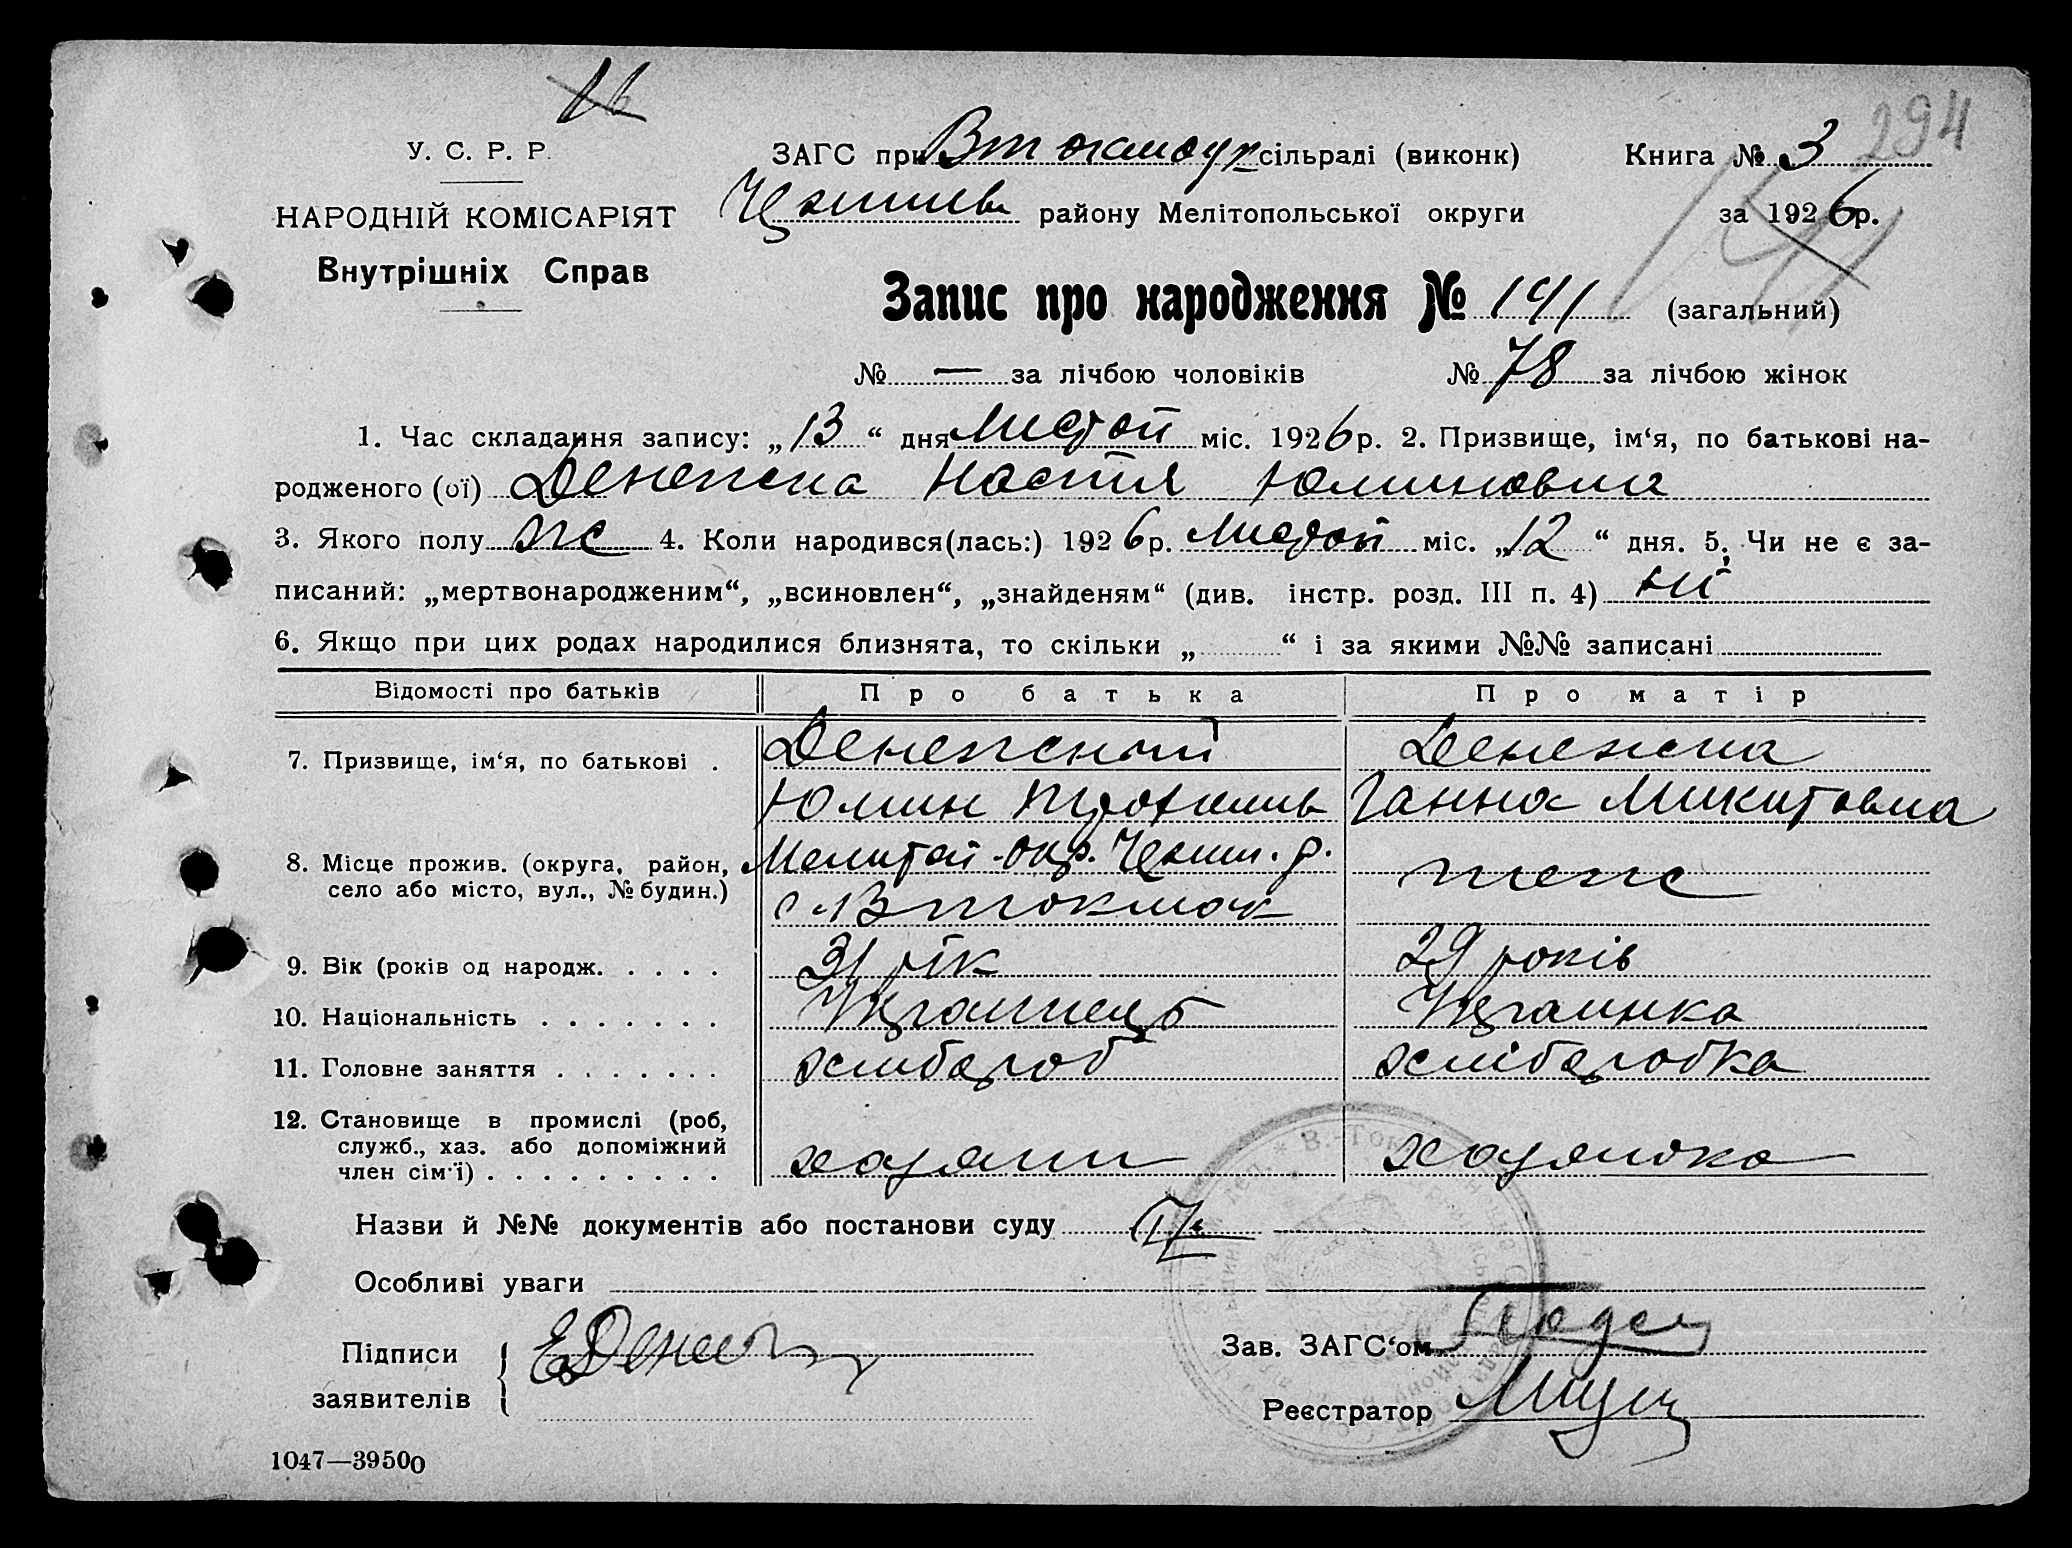 294
У. С. Р. Р.
НАРОДНІЙ КОМІСАРІЯТ
Внутрішніх Справ
ЗАГС при Втокмоцк сільраді (виконк) Книга № 3
району Мелітопольської округи за 1926р.
Запис про народження № 141 (загальний)
№ — за лічбою чоловіків № 78 за лічбою жінок
1. Час складання запису: „13“ дня Листоп міс. 1926р. 2. Призвище, ім‘я, по батькові на-
родженого (ої) Денежна Настя Юлиновна
3. Якого полу ж 4. Коли народився(лась:) 1926р. Листоп міс. „12“ дня. 5. Чи не є за-
писаний: „мертвонародженим“, „всиновлен“, „знайденям“ (див. інстр. розд. III п. 4) ні
6. Якщо при цих родах народилися близнята, то скільки „ “ і за якими №№ записані
Відомості про батьків Про батька Про матір
7. Призвище, ім‘я, по батькові . Денежний Денежна
Юлин Ганна Микитовна
8. Місце прожив. (округа, район, Мелитоп. окр. р.
село або місто, вул., № будин.) с Втокмак теж
9. Вік (років од народж. . . . . 31 рік 29 років
10. Національність . . . . . . . Украинець Украинка
11. Головне заняття . . . . . . . хлибороб хліборобка
12. Становище в промислі (роб,
служб., хаз. або допоміжний
член сім‘ї) . . . . . . . . . хозяин хозяйка
Назви й №№ документів або постанови суду
Особливі уваги
Підписи
заявителів
Зав. ЗАГС‘ом
Реєстратор
1047—39500